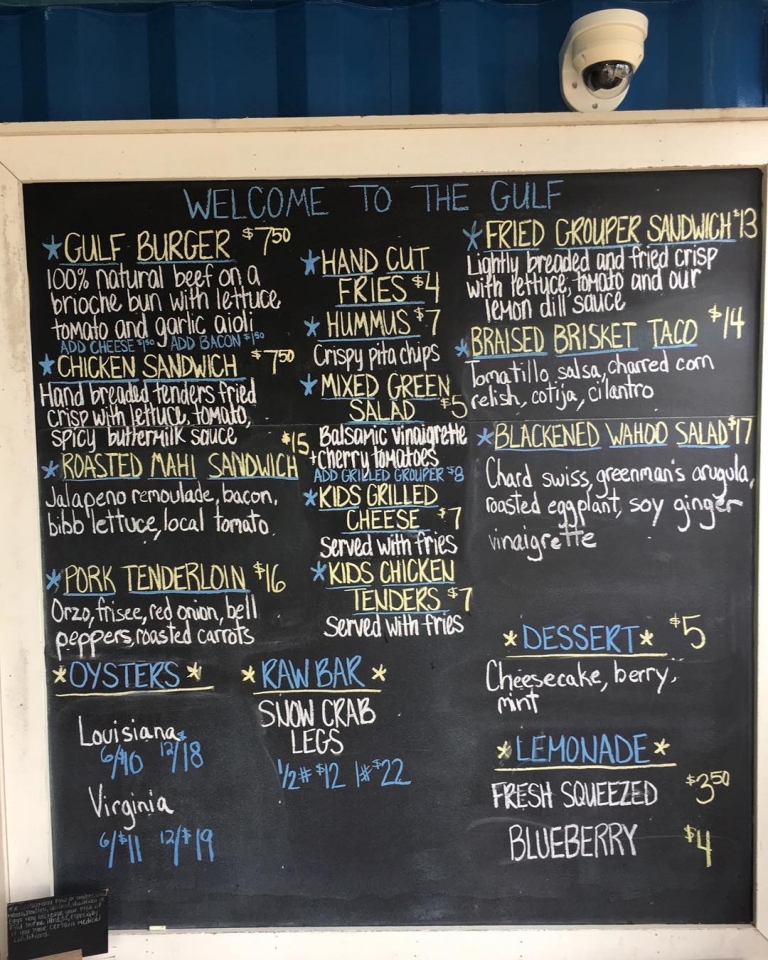 WELCOME TO THE GULF
*GULF BURGER $7.50
100% natural beef on a
brioche bun with lettuce
tomato and garlic aioli
ADD CHEESE $1.50 ADD BACON $1.50
*CHICKEN SANDWICH $7.50
Hand breaded tenders fried
crisp with lettuce, tomato,
spicy buttermilk sauce
$15
*ROASTED MAHI SANDWICH
Jalapeno remoulade, bacon,
bibb lettuce, local tomato
*PORK TENDERLOIN $16
Orzo, frisee, red onion, bell
peppers, roasted carrots
*OYSTERS*
Louisiana
6/$10 12/18
Virginia
6/$11 12/$19
*HAND CUT
FRIES $4
*HUMMUS $7
Crispy pita chips
*MIXED GREEN
SALAD $5
Balsamic vinaigrette
+cherry tomatoes
ADD GRILLED GROUPER $8
*KIDS GRILLED
CHEESE $7
Served with fries
*KIDS CHICKEN
TENDERS $7
Served with fries
*RAW BAR*
SNOW CRAB
LEGS
1/2# $12 1# $22
*FRIED GROUPER SANDWICH $13
Lightly breaded and fried crisp
with lettuce, tomato and our
lemon dill sauce
$14
*BRAISED BRISKET TACO
Tomatillo salsa, charred corn
relish, cotija, cilantro
*BLACKENED WAHOO SALAD $17
Chard swiss, greenman's arugula,
roasted eggplant, soy ginger
vinaigrette
*DESSERT* $5
Cheesecake, berry,
mint
*LEMONADE*
FRESH SQUEEZED $3.50
BLUEBERRY $4